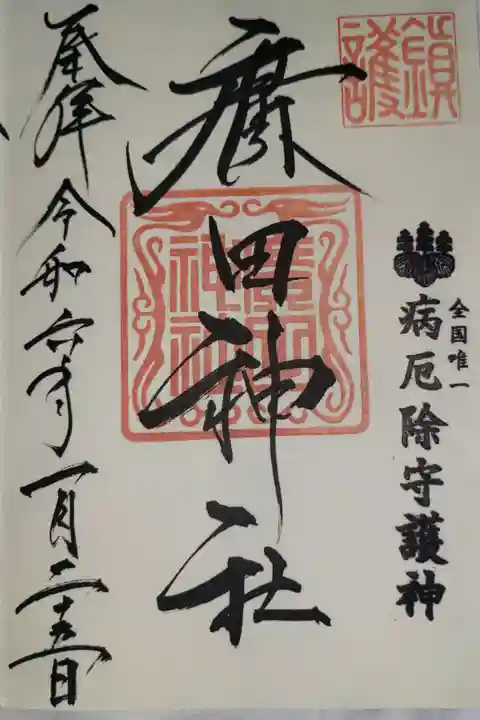 鎮護
全国唯一
病厄除守護神
廣田神社
廣田神社
奉拝 令和六年一月二十五日